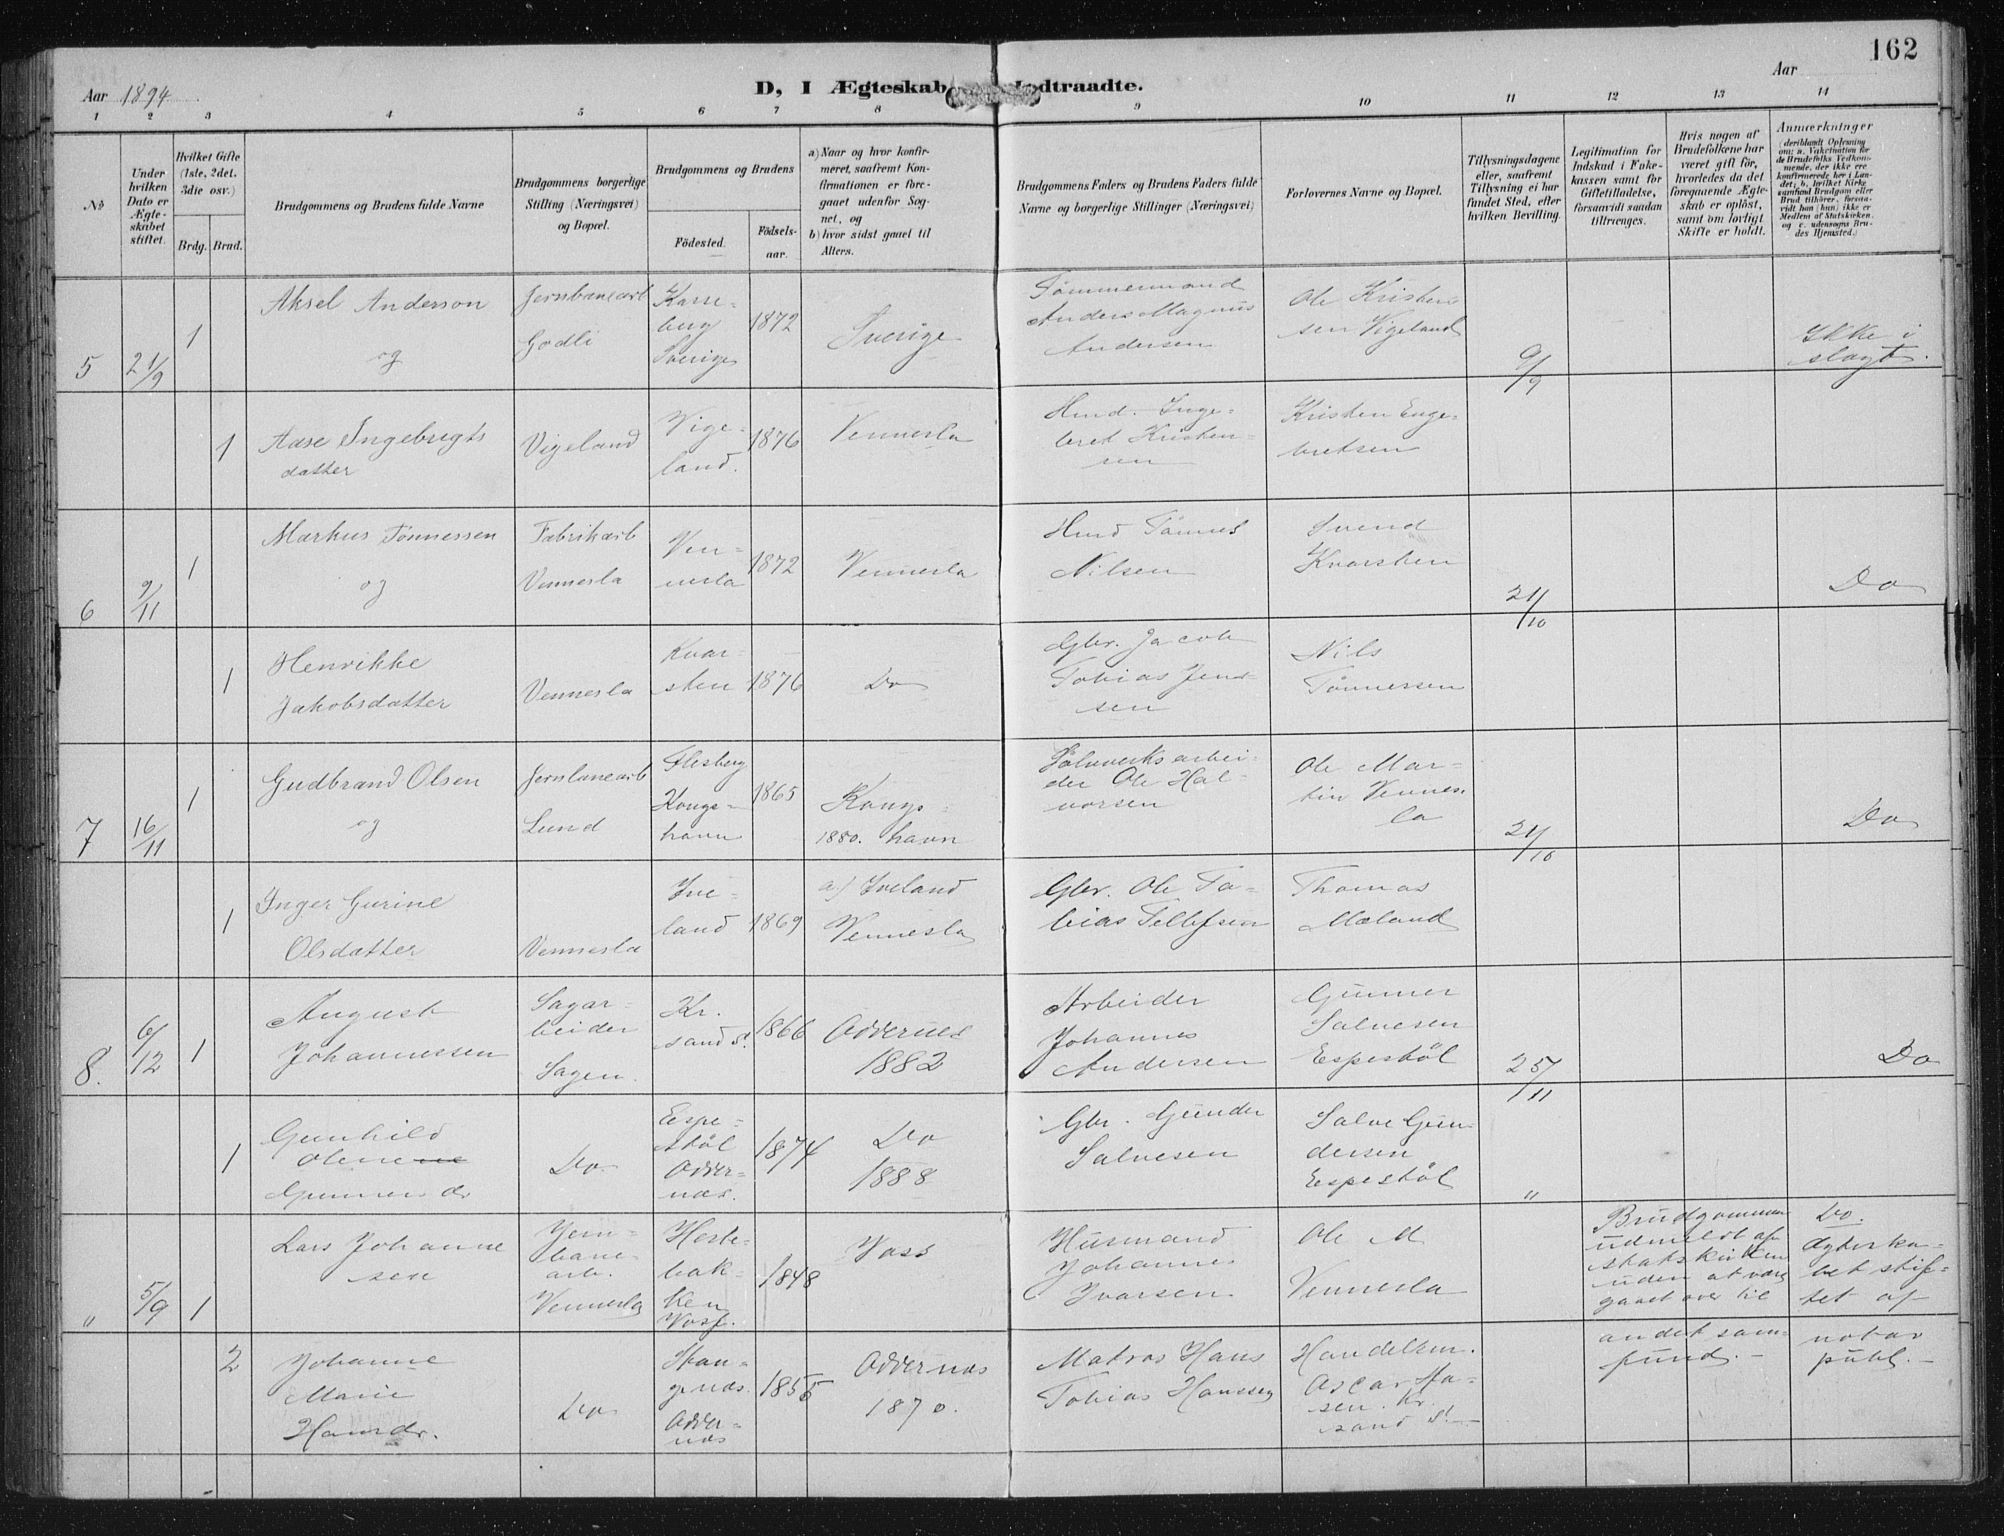 162
Aar 1894
D, I Ægteskab Indtraadte.
Aar
1 2 3 4 5 6 7 8 9 10 11 12 13 14
No
Under hvilken Dato er Ægteskabet stiftet.
Hvilket Gifte (1ste, 2det. 3die osv.)
Brdg. Brud.
Brudgommens og Brudens fulde Navne
Brudgommens borgerlige Stilling (Næringsvei) og Bopæl.
Brudgommens og Brudens
Födested.
Födselsaar.
a) Naar og hvor konfirmeret, saafremt Konfirmationen er foregaaet udenfor Sognet, og
b) hvor sidst gaaet til Alters.
Brudgommens Faders og Brudens Faders fulde Navne og borgerlige Stillinger (Næringsvei)
Forlovernes Navne og Bopæl.
Tillysningsdagene eller, saafremt Tillysning ei har fundet Sted, efter hvilken Bevilling.
Legitimation for Indskud i Enkekassen samt for Giftetilladelse, forsaavidt saadan tiltrænges.
Hvis nogen af Brudefolkene har været gift för, hvorledes da det foregaaende Ægteskab er oplöst, samt om lovligt Skifte er holdt.
Anmærkninger (deriblandt Oplysning om: a. Vakcination for de Brudefolks Vedkommende, der ikke ere konfirmerede her i Landet; b. hvilket Kirkesamfund Brudgom eller Brud tilhörer, forsaavidt han (hun) ikke er Medlem af Statskirken, og c. udensogns Brudes Hjemsted.)
5
21/9
1
Aksel Anderson
og
Jernbanearb
Godli
Karreberg
Sverige
1872
Sverige
Tömmermand
Anders Magnus
Andersen
Ole Kristensen Vigeland
9/9
Ikke i
slægt.
1
Aase Ingebrigtsdatter
Vigeland
Vigeland.
1876
Vennesla
Hmd. Ingebret Kristensen
Kristen Engebretsen
6
9/11
1
Markus Tönnessen
og
Fabrikarb
Vennesla
Vennesla
1872
Vennesla
Hmd Tönnes
Nilsen
Svend
Kvarsten
21/10
Do
1
Henrikke
Jakobsdatter
Vennesla
Kvarsten
1876
Do
Gbr. Jacob
Tobias Jensen
Nils
Tönnessen
7
16/11
1
Gudbrand Olsen
og
Jernbanearb
Lund
Flesberg
Kongshavn
1865
Kongshavn
1880.
Sölvverksarbeider Ole Halvorsen
Ole Martin Vennesla
21/10
Do
1
Inger Gurine
Olsdatter
Vennesla
Iveland
1869
a) Iveland
Vennesla
Gbr. Ole Tobias Tellefsen
Thomas
Mæland
8.
6/12
1
August
Johannessen
Sagarbeider
Sagen.
Kr.sand S.
1866
Oddernes
1882
Arbeider
Johannes
Andersen
Gunner
Salvesen
Espestöl
25/11
Do
1
Gunhild
Olene
Gunnersdr
Do
Espestöl
Oddernæs.
1874
Do
1888
Gbr. Gunder
Salvesen
Salve Gundersen
Espestöl
"
"
5/9
1
Lars Johannesen
Jernbanearb.
Vennesla
Hestebakken
Voss.
1848
Voss
Husmand
Johannes
Ivarsen
Ole M
Vennesla
Brudgommen
udmeldt af
statskirken
uden at være
gaaet over til
andet samfund.
Do.
Ægteskabet stiftet af
notar
publ.
2
Johanne
Marie
Hansdr.
Do
Stangenæs
Oddernæs
1855
Oddernæs
1870.
Matros Hans
Tobias Hanssen
Handelsm.
Oscar Hasen. Kr.sand S.